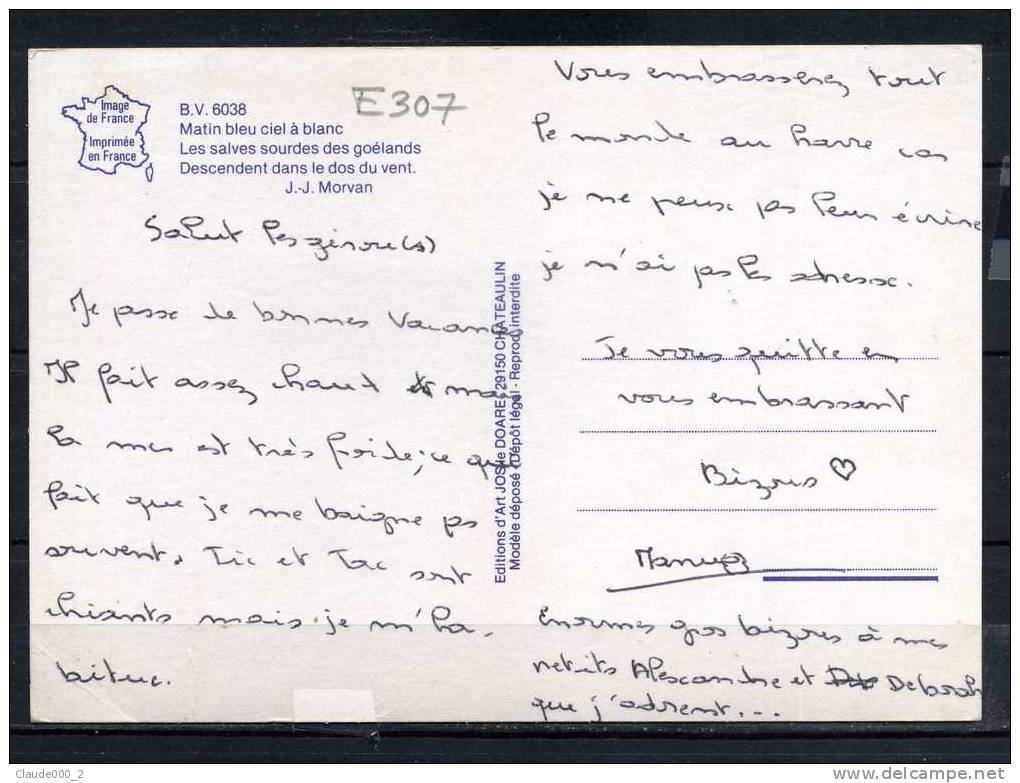 Image
de France
Imprimée
en France
B.V. 6038
Matin bleu ciel à blanc
Les salves sourdes des goélands
Descendent dans le dos du vent.
J.-J. Morvan
E307
Salut
Je passe de bonnes vacances
Il fait assez chaud mais
la mer est très froide, ce qui
fait que je me baigne pas
souvent. Tic et Tac sont
chiants mais je m'ha-
bitue.
Editions d'Art JOS le DOARE - 29150 CHATEAULIN
Modèle déposé (Dépôt légal - Reprod. interdite
Vous embrasserez tout
le monde au havre cas
je ne peux pas leur écrire
je n'ai pas les adresse.
Je vous quitte en
vous embrassant
Bizous ♡
Enormes gros bizous à mes
petits Alexandre et Deborah
que j'adorent...
Claude000_2
www.delcampe.net